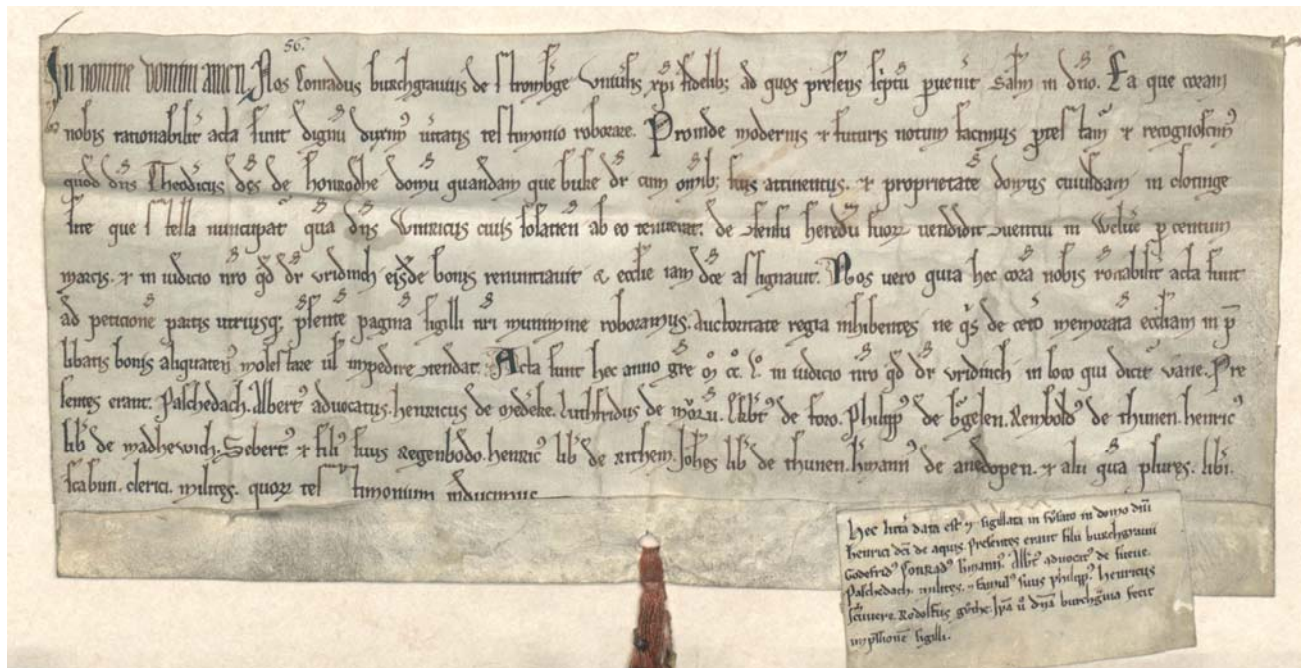 56.
In nomine domini amen. Nos Conradus burchgravius de stromb'ge Univ'sis xp̄i fidelib; ad quos presens sc'ptū p'uenit Sal'm in dn̄o. Ea que coram
nobis rationabilit' acta sunt dignū duxim' u'itatis testimonio roborare. Proinde modernis & futuris notum facimus p'testam' & recognoscim'
quod dn̄s Theodicus dc̄s de honrodhe domū quandam que buke dr̄ cum om̄ib; suis attinentiis. & proprietatē domus cuiusdam in clotinge
site que stella nuncupat' quā dn̄s Wintricus ciuis sosatien ab eo tenuerat. de ɔsensu heredū suoꝝ uendidit ɔuentui in Welu'e p̱ centum
marcis. & in iudicio nr̄o qd̄ dr̄ vridinch eisdē bonis renuntiauit & eccl'ie iam dc̄e assignauit. Nos uero quia hec corā nobis rōnabilit' acta sunt
ad peticionē partis utriusq; p'sentē paginā sigilli nr̄i munimine roboramus. Auctoritate regia inhibentes ne q's de cet'o memoratā eccl'iam in p̄
libatis bonis aliquaten' molestare ul' impedire ɔtendat. Acta sunt hec anno gr̄e ꝏ cc̊. l̊. in iudicio nr̄o qd̄ dr̄ vridinch in loco qui dicit' vane. Pre
sentes erant. Paschedach. Albert' aduocatus. henricus de medeke. Luthfridus de Lk̄bt' de foro. Philipp' de b'gelen. Renbold' de thunen. henric'
lib' de madhewich. Sebert' & fili' suus Regenbodo. henric' lib' de rithem. Joh'es lib' de thunen. h'mann' de anedopen. & alii quā plures. lib'i.
scabini. clerici. milites. quoꝝ testimonium inducimus
hec litt'a data est & sigillata in sosato in domo dn̄i
henrici dc̄i de aquis. Presentes erant filii burchgrauii
Godefrid' Conrad' h'mann'. Alb't' aduocat' de
Paschedach. milites. & famul' suus philipp'. henricus
Rodolfus Ip̄a ū dn̄a burchg'uia fecit
imp'ssionē sigilli.